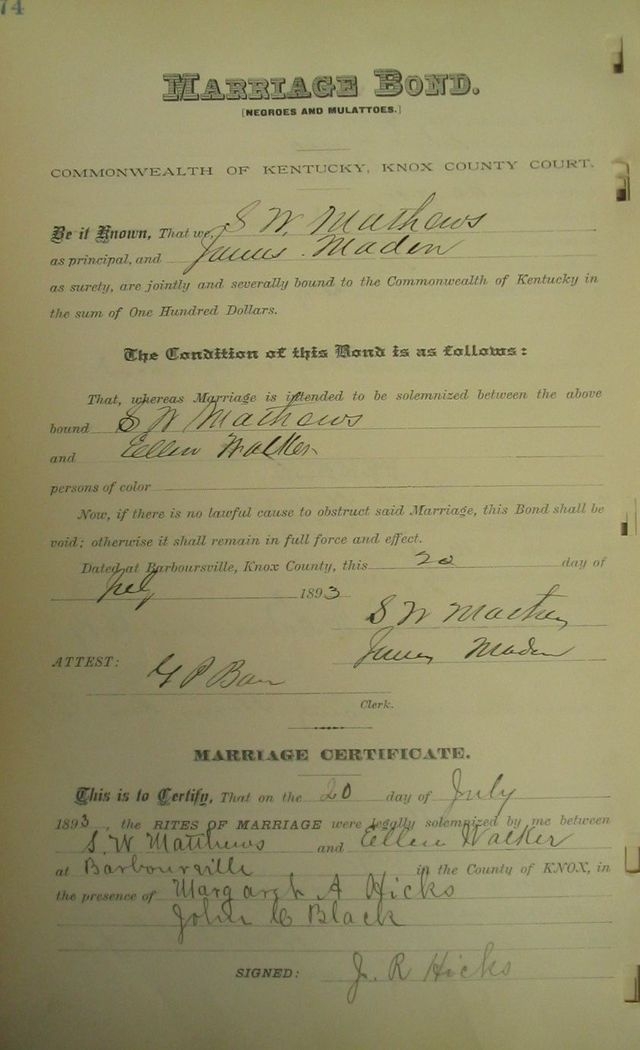 74
MARRIAGE BOND.
[NEGROES AND MULATTOES.]
COMMONWEALTH OF KENTUCKY, KNOX COUNTY COURT.
Be it Known, That we, S W. Mathews
as principal, and James Maden
as surety, are jointly and severally bound to the Commonwealth of Kentucky in
the sum of One Hundred Dollars.
The Condition of this Bond is as follows:
That, whereas Marriage is intended to be solemnized between the above
bound S W Mathews
and Ellen Walker
persons of color
Now, if there is no lawful cause to obstruct said Marriage, this Bond shall be
void; otherwise it shall remain in full force and effect.
Dated at Barboursville, Knox County, this 20 day of
July 1893
S W Mathews
James Maden
ATTEST:
G P Barr
Clerk.
MARRIAGE CERTIFICATE.
This is to Certify, That on the 20 day of July
1893, the RITES OF MARRIAGE were legally solemnized by me between
S. W Matthews and Ellen Walker
at Barbourville in the County of KNOX, in
the presence of A Hicks
John C Black
SIGNED: J. R Hicks